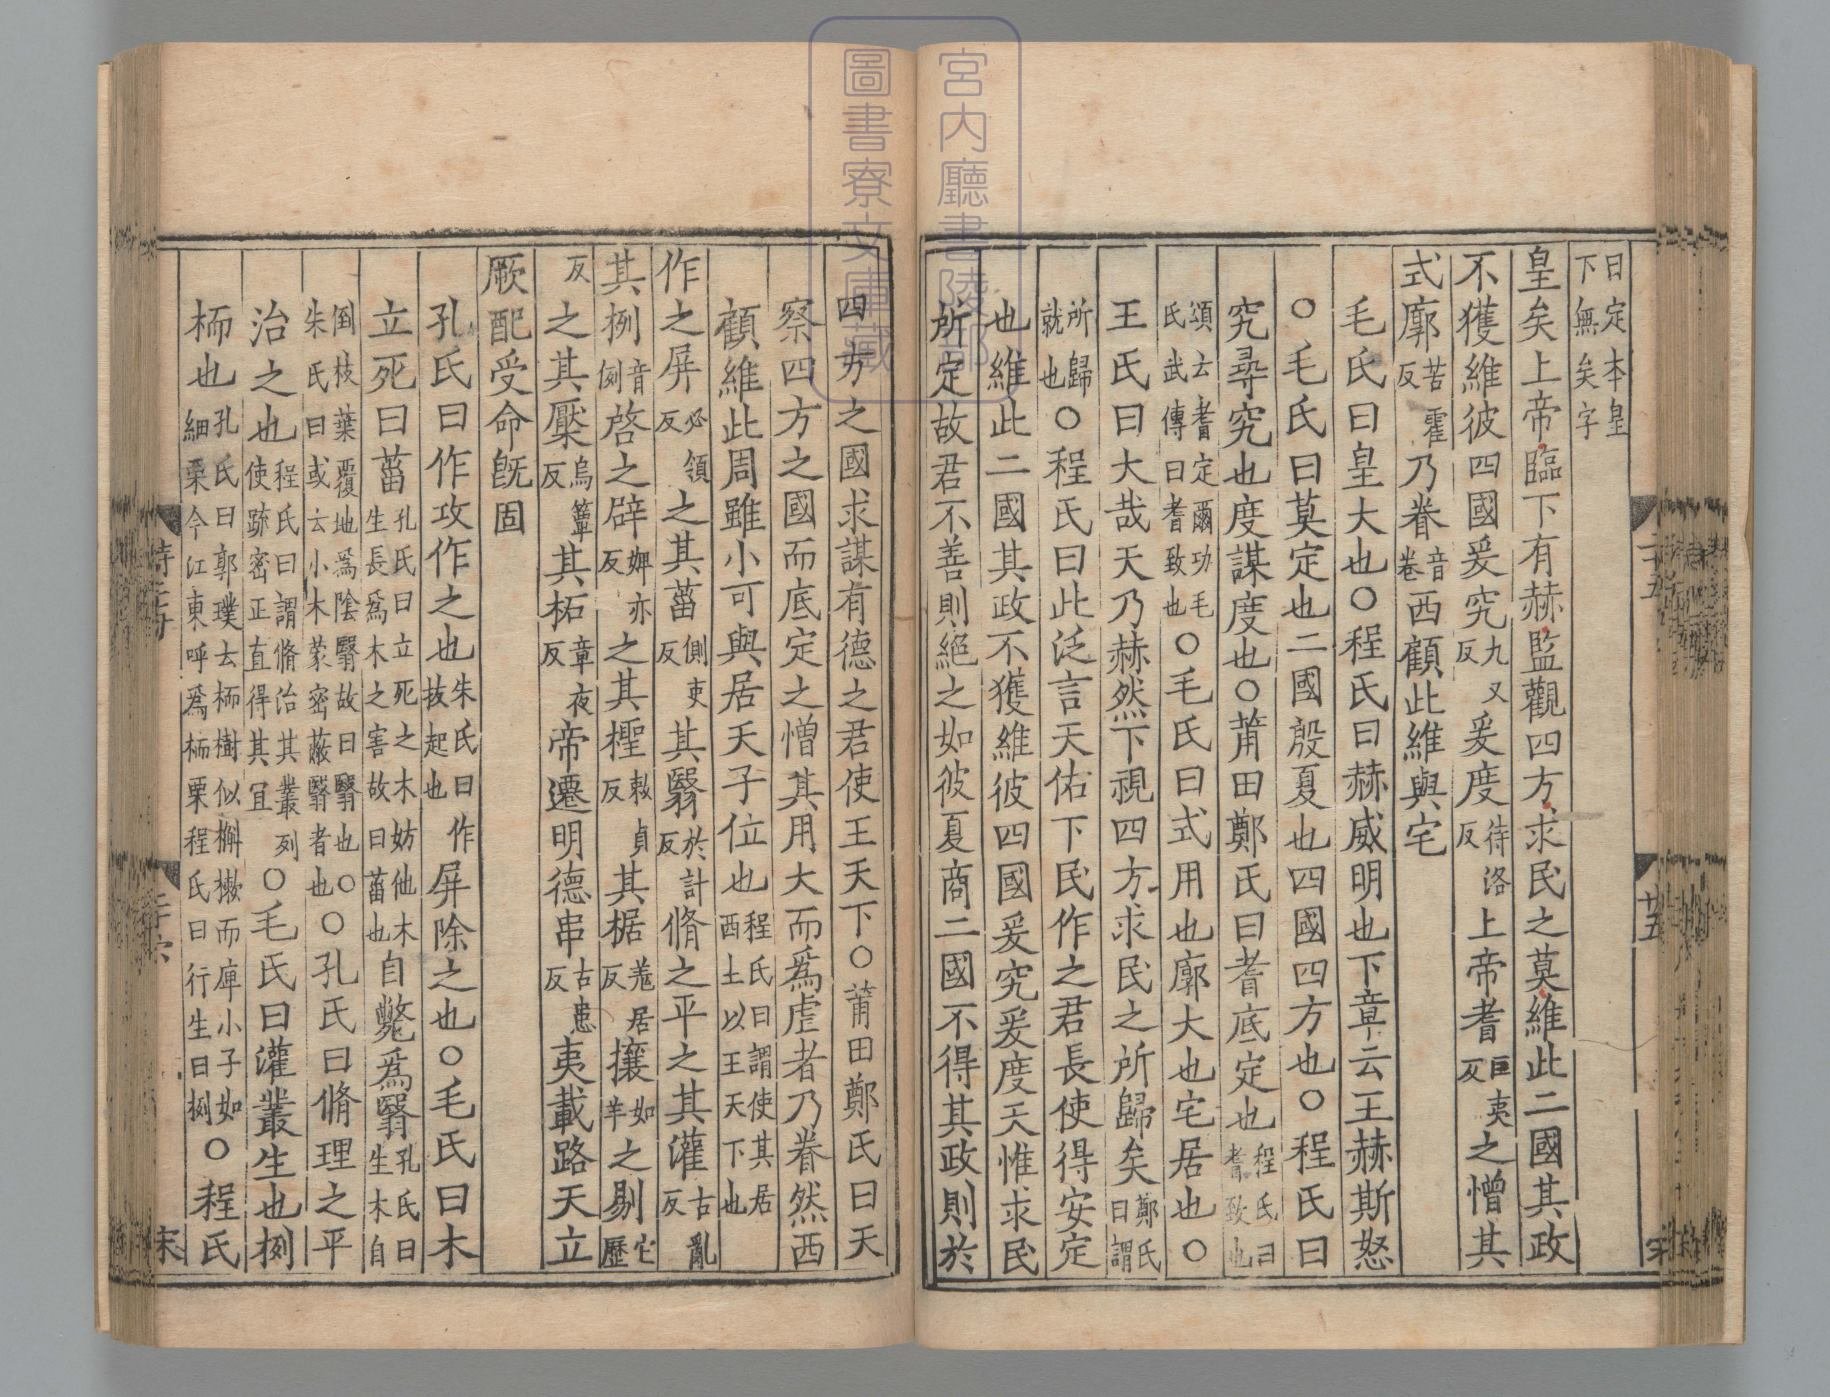 曰定本皇下無矣字
皇矣上帝臨下有赫監觀四方求民之莫維此二國其政
不獲維彼四國爰究九又反爰度待洛反上帝耆巨夷反之憎其
式廓苦霍反乃眷音卷西顧此維與宅
毛氏曰皇大也○程氏曰赫威明也下章云王赫斯怒
○毛氏曰莫定也二國殷夏也四國四方也○程氏曰
究尋究也度謀度也○莆田鄭氏曰耆底定也程氏曰耆致也
頌云耆定爾功毛氏武傳曰耆致也○毛氏曰式用也廓大也宅居也○
王氏曰大哉天乃赫然下視四方求民之所歸矣鄭氏曰謂
所歸就也○程氏曰此泛言天佑下民作之君長使得安定
也維此二國其政不獲維彼四國爰究爰度天惟求民
所定故君不善則絕之如彼夏商二國不得其政則於
四方之國求謀有德之君使王天下○莆田鄭氏曰天
察四方之國而底定之憎其用大而為虐者乃眷然西
顧維此周雖小可與居天子位也程氏曰謂使其居西土以王天下也
作之屏必領反之其菑側吏反其翳於計反脩之平之其灌古亂反
其栵音例啓之辟婢亦反之其檉敕貞反其椐羌居反攘如羊之剔它歷
反之其檿烏簟反其柘章夜反帝遷明德串古患反夷載路天立
厥配受命既固
孔氏曰作攻作之也朱氏曰作拔起也屏除之也○毛氏曰木
立死曰菑孔氏曰立死之木妨他木生長為木之害故曰菑也自斃為翳孔氏曰生木自
倒枝葉覆地為陰翳故曰翳也○朱氏曰或云小木蒙密蔽翳者也○孔氏曰脩理之平
治之也程氏曰謂脩治其叢列使疏密正直得其宜○毛氏曰灌叢生也栵
栭也孔氏曰郭璞云栭樹似槲樕而庳小子如細栗今江東呼為栭栗程氏曰行生曰栵○程氏
廿五
二十六
宋
宮内廳書陵部
圖書寮文庫藏